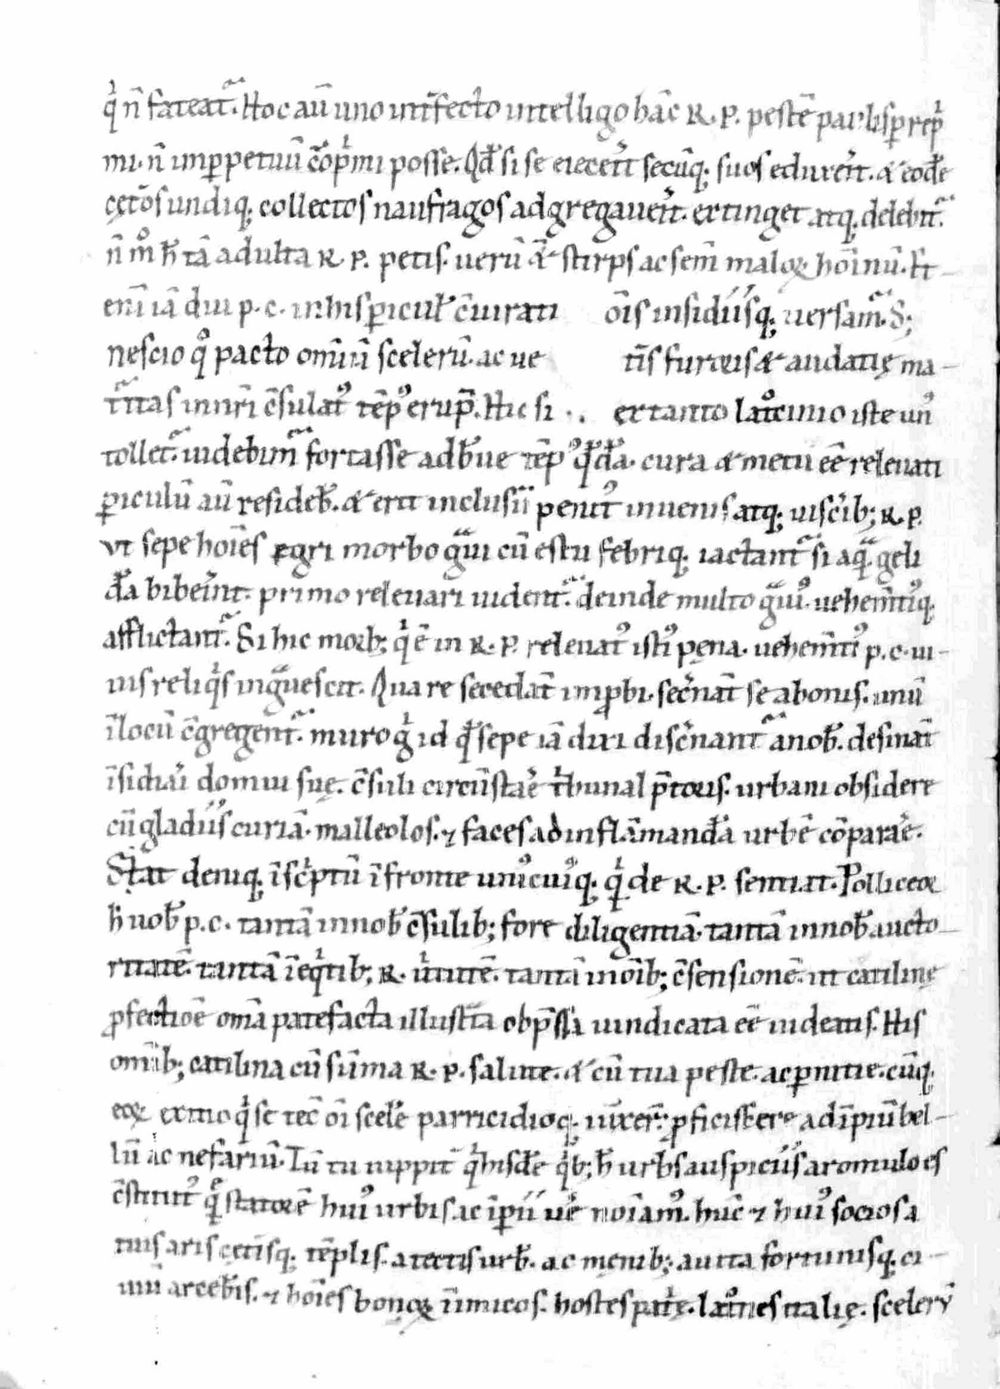 q̇ n̄ fateat᷑. Hoc aū uno int̄fecto intelligo hāc R. P. pestē paulisꝑ rep̄
mi. n̄ inꝑpetuū cōp̄mi posse. Qd̄ si se eiecerīt secūq; suos eduxer̄t. & eodē
cęt̄os undiq; collectos naufragos adgregauer̄t. extinget᷑ atq; delebit᷑.
n̄ m̊ h̄ tā adulta R. P. pestis. uerū & stirps ac sem̄ maloꝝ hom̄inū. Et
enī iā diu p. c. in his ꝑicul̄ c̄iurati ōis insidiisq; uersam᷑. S;
nescio q̊ pacto omniū scelerū. ac ue t̄is furoris & audatię ma-
t᷑itas in nr̄i c̄sulat᷒ tēp᷒ erup̄. Hic si ex tanto lat̊cinio iste un᷒
tollet᷑. uidebim᷑ fortasse ad b̄ue tēp᷒ qd̄dā. cura & metu eē releuati
ꝑiculū aū resideb̄. & erit inclusū penit᷒ in uenis atq; uisc̄ib; R. P.
Vt sepe hoīes ęgri morbo g̃ui cū estu febriq; iactant᷑ si aq̃ geli
dā biber̄int. primo releuari uident᷑. deinde multo g̃ui᷒. uehem̄ti᷒q;
afflictant᷑. Si hic morb; q̇ ē in R. P. releuat᷒ isti᷒ pęna. uehem̄ti᷒ p. c. ui-
uis reliq̇s ing̃uescit. Quare secedāt inꝓbi. sec̄nāt se a bonis. unū
ī locū c̄gregent᷑. muro g̊ id qd̄ sepe iā dixi disc̄nant᷑ a nob̄. desināt
īsidiari domui suę. c̄suli circūstāe t̄bunal p̄toris. urbani obsidere
cū gladiis curiā. malleolos. ⁊ faces ad inflāmandā urbē cōparāe.
Sit deniq; īsc̄ptū ī fronte uni᷒cui᷒q; q̇d de R. P. sentiat. Polliceoꝛ
h̄ uob̄ p. c. tantā in nob̄ c̄sulib; fore diligentiā. tantā in nob̄ aucto-
ritatē. tantā ī eq̇tib; R. uirtutē. tantā in oīb; c̄sensionē. ut catilinę
ꝓfectiōe omīa patefacta illustr̄ata obp̄ssa uindicata eē uideatis. His
omīib; catilina cū sūma R. P. salute. & cū tua peste. ac ꝑnitie. cūq;
eoꝝ exitio q̇ se tec̄ oī scelere parricidioq; iūxer̄. ꝓficiscere ad īpiū bel-
lū ac nefariū. Tū tu iuppit̄ q̇ hisdē q̇b; h̄ urbs auspiciis a romulo es
c̄stitut᷒ q̃ statorē hui᷒ urbis. ac īperii uē noīam᷒. hūc ⁊ hui᷒ socios a
tuis aris cęt̄isq; tēplis. a tectis urb̄. ac męnib; a uita fortunisq; ci-
uiū arcebis. ⁊ hoīes bonoꝝ īimicos. hostes patr̄ię. lat̊nes italię. scelerū